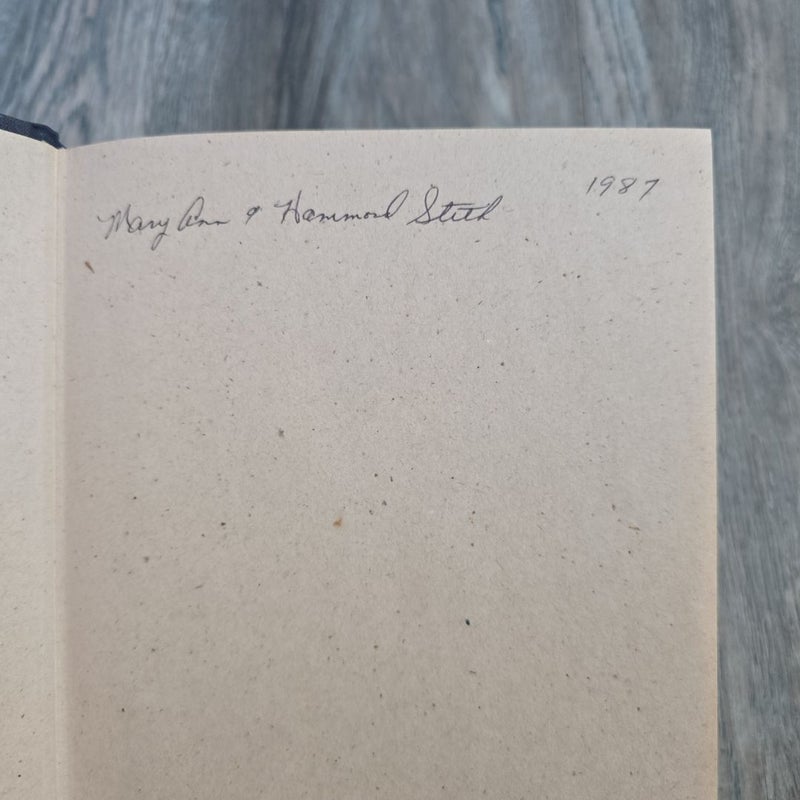 Mary Ann & Hammond Stith 1987